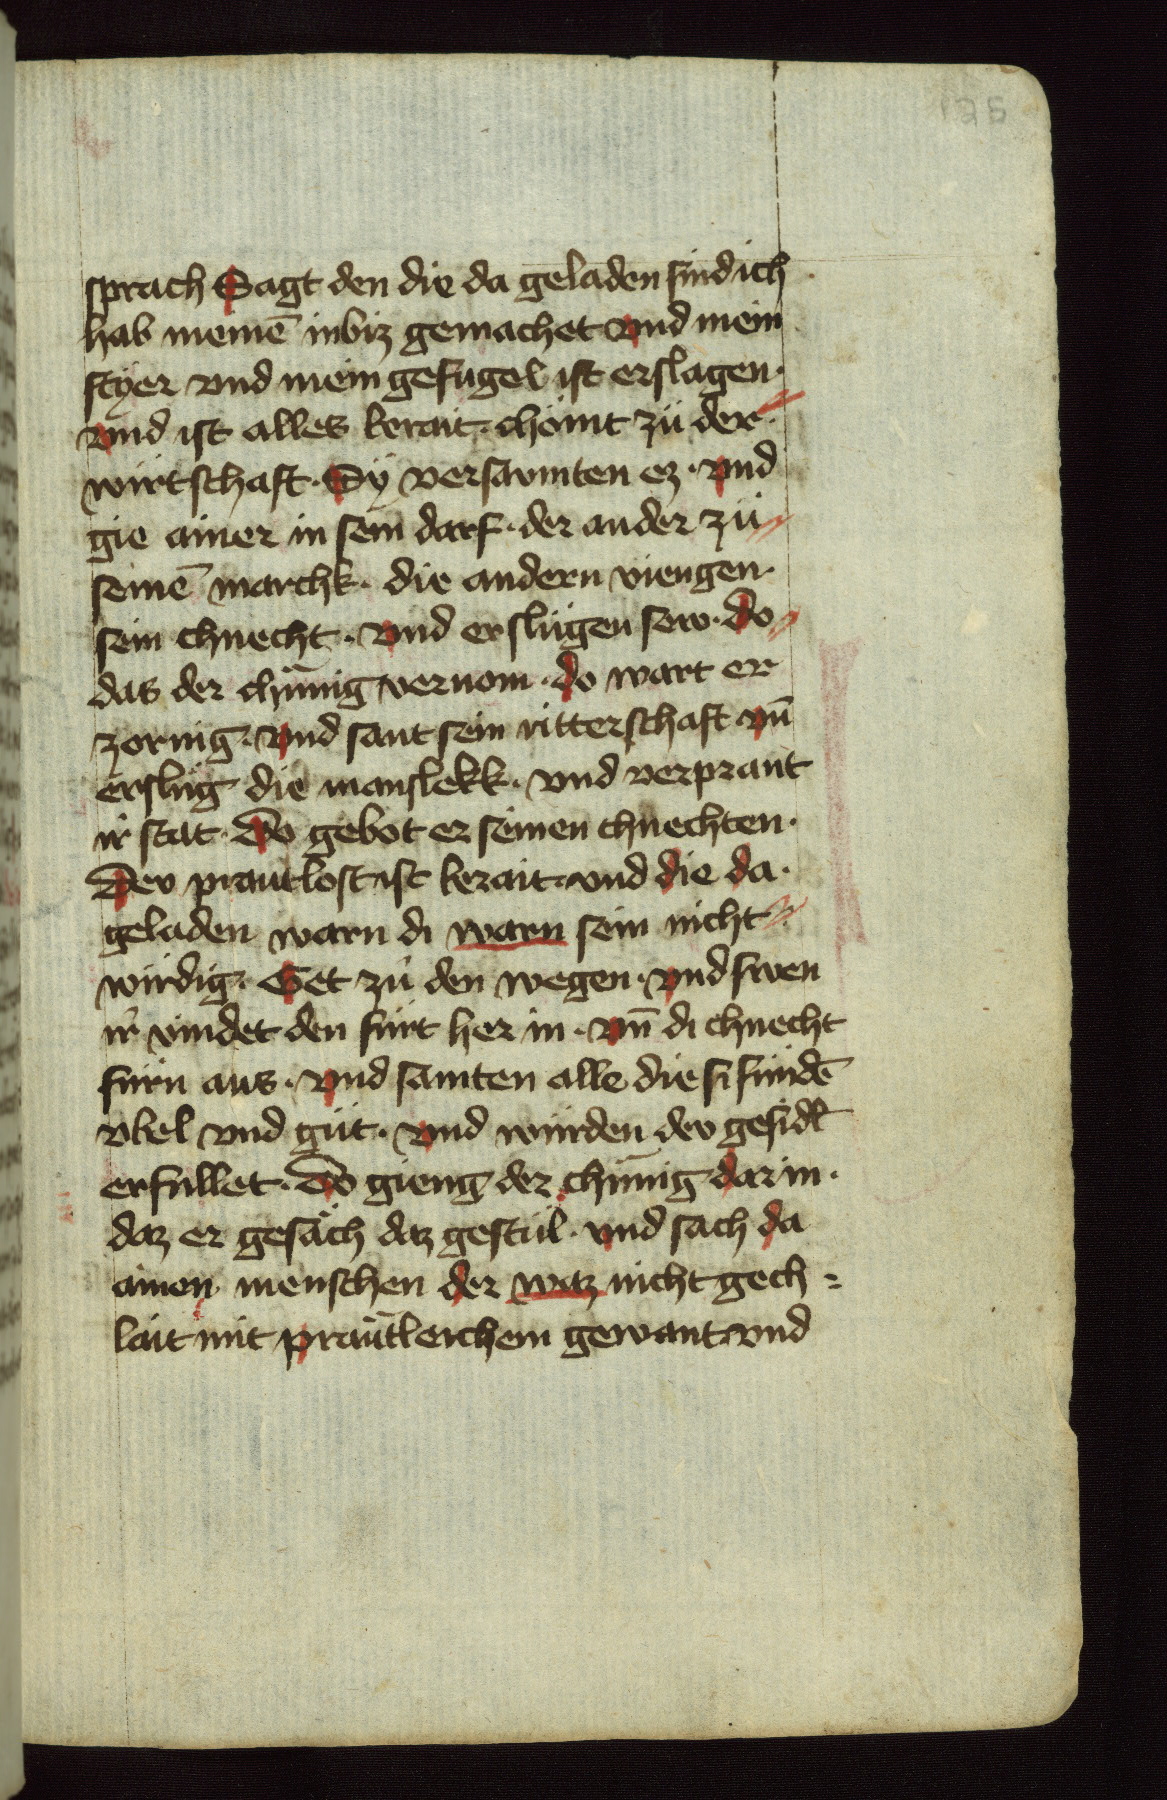 125
sprach Sagt den die da geladen sind ich
hab meinē inbiz gemachet vnd mein
styer vnd mein gefugel ist erslagen·
vnd ist alles berait· chömt zü der·
wirtschaft· Sÿ versaumten ez· vnd
gie ainer in sein darf· der ander zü
seinē marchk· die andern viengen·
sein chnecht· vnd erslügen sew· do
das der chünig vernom· do wart er
zornig· vnd sant sein ritterschaft vn̄
erslüg die manslekk· vnd verprant
ir stat· Do gebot er seinen chnechten·
Dev prautlost ist berait· vnd die da·
geladen warn di warn sein nicht
wirdig· Get zü den wegen· vnd swen
ir vindet den fürt her in· vn̄ di chnecht
fürn aus· vnd samten alle die si fundē
vbel vnd güt· vnd würden dev gesidl
erfullet· Do gieng der chünig dar in·
daz er gesäch daz gestül· vnd sach da
ainen menschen der waz nicht gech=
lait mit prautleichem gewant vnd